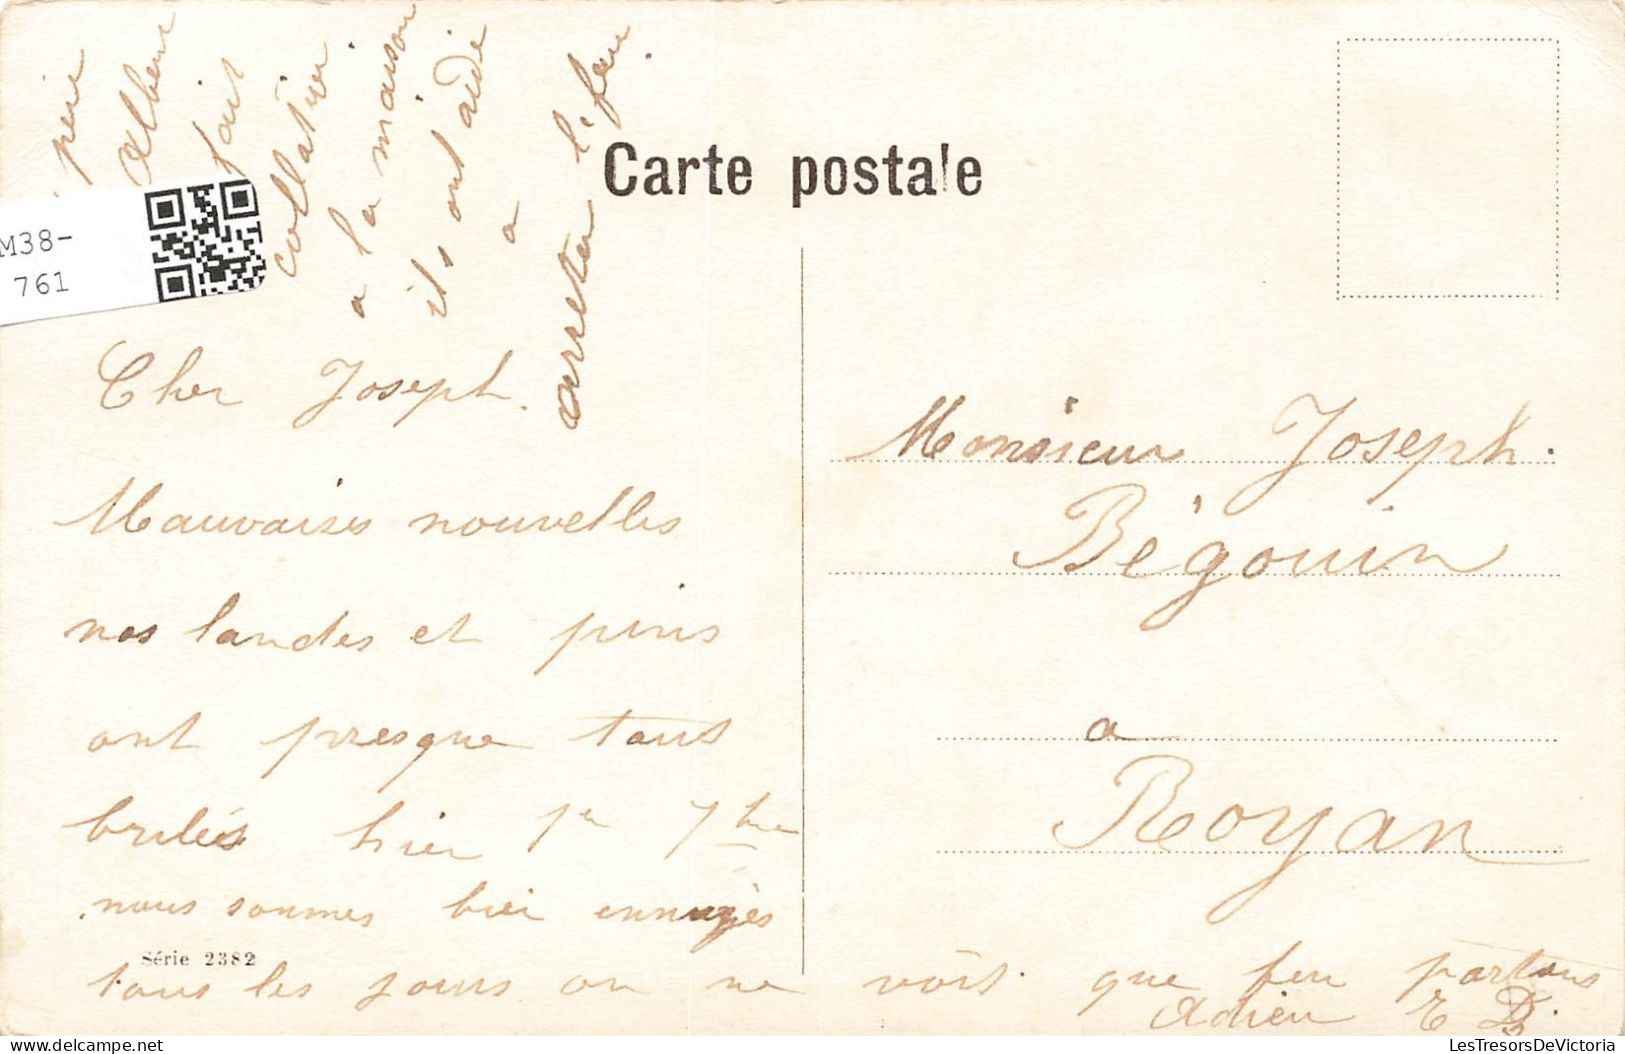 Carte postale
M38-
761
père
Albert
fait
collation
a la maison
ils ont aidé
a
arreter l'feu
Cher Joseph.
Mauvaises nouvelles
nos landes et pins
ont presque tous
brulés hier 1er 7bre
nous sommes bien ennuyès
Série 2382
tous les jours on ne vois que feu partous
Adieu E D.
Monsieur Joseph.
Bégouin
a
Royan
LesTresorsDeVictoria
delcampe.net